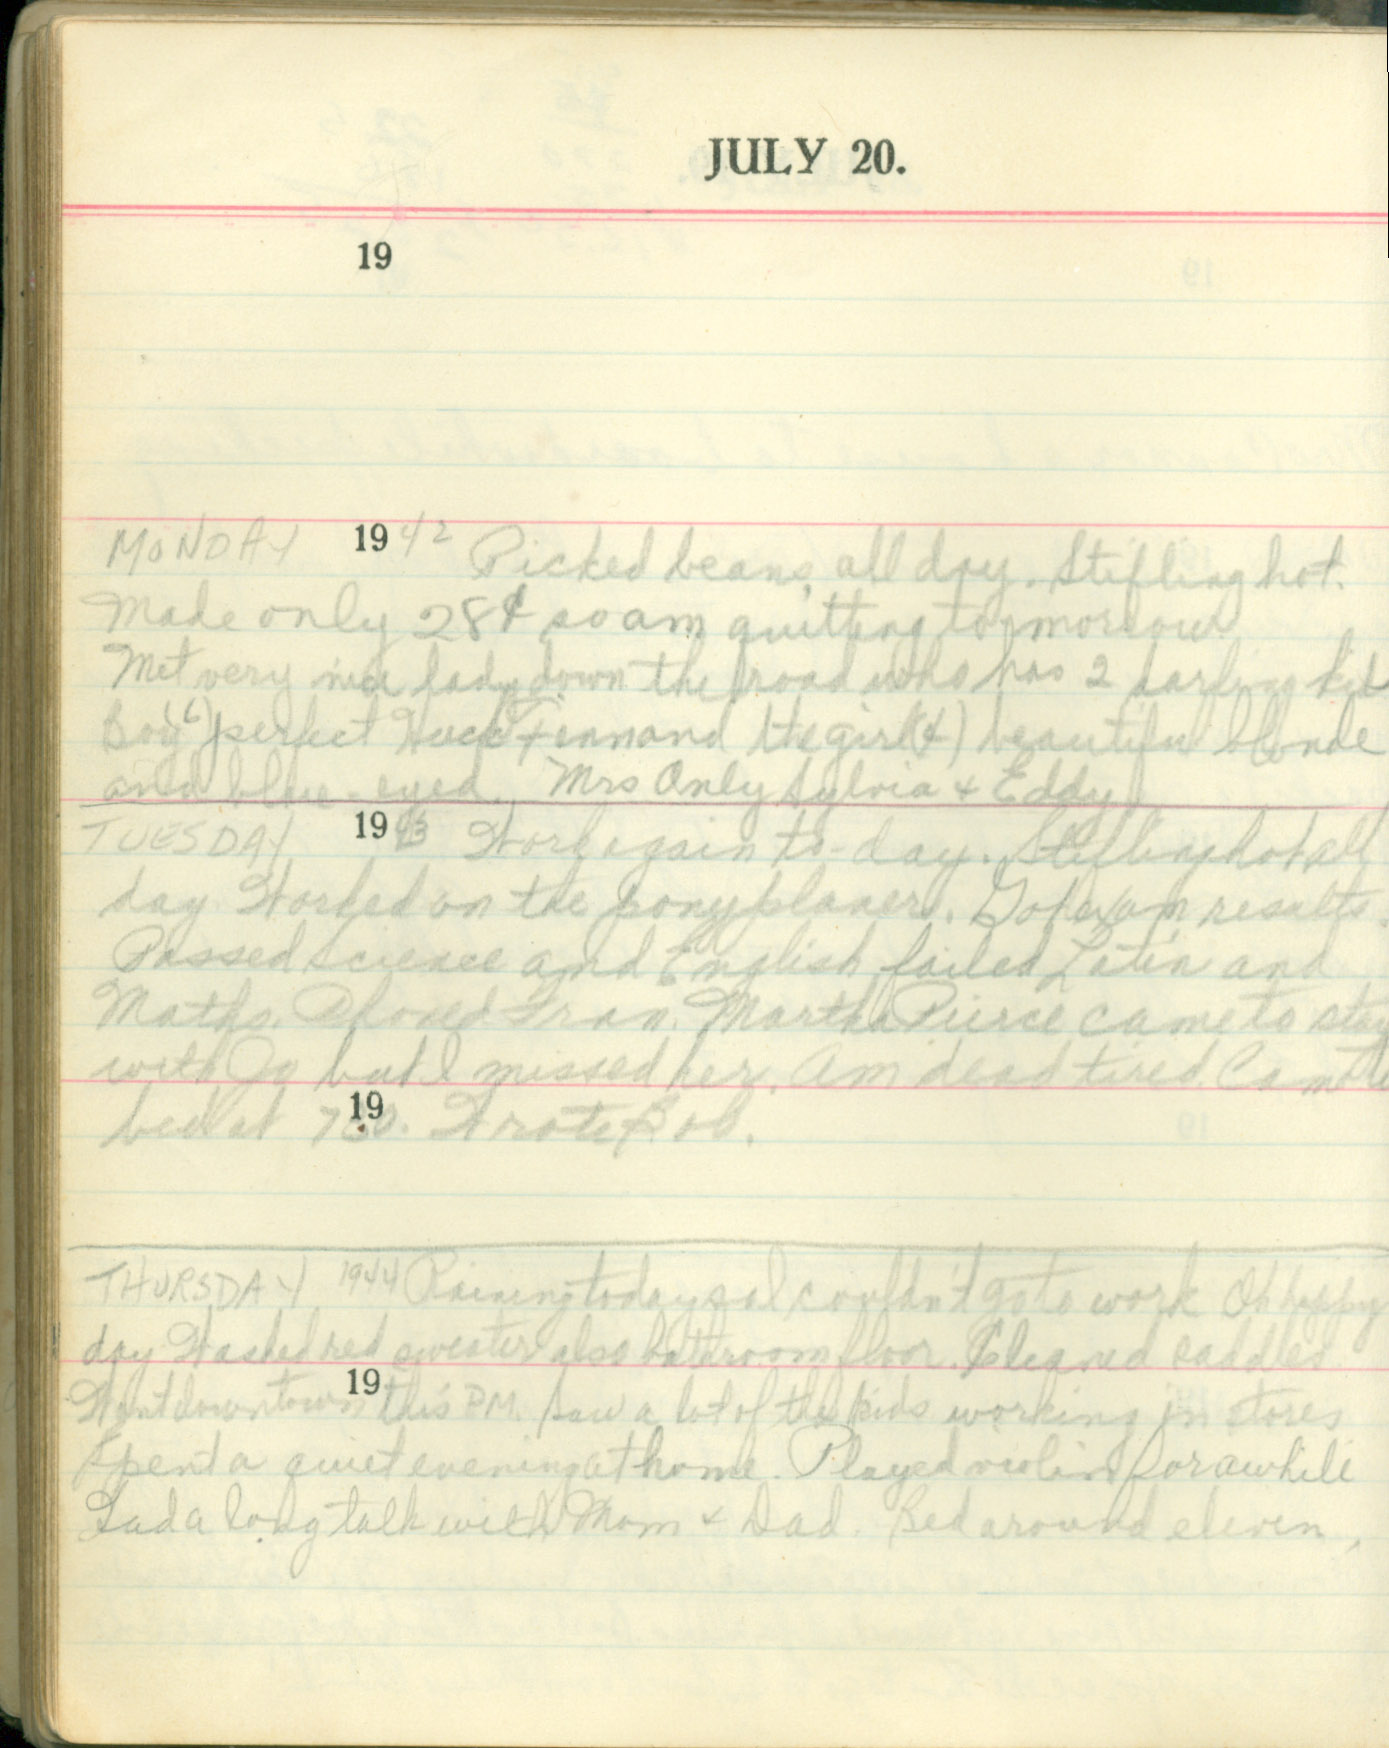 JULY 20.
19
MONDAY 1942 Picked beans all day. Stifling hot.
Made only 28¢ so am quitting to-morrow
Met very nice lady down the road who has 2 darling kids
Boy (6) perfect Huck Finn and the girl (4) beautiful blonde
and blue-eyed. Mrs Only Sylvia & Eddy
TUESDAY 1943 Work again to-day. Stifling hot all
day Worked on the pony planer. Got exam results.
Passed science and English failed Latin and
Maths. Phoned Fran. Martha Pierce came to stay
with Jo but I missed her. Am dead tired. Came to
bed at 730. Wrote Bob.
19
THURSDAY 1944 Raining today so I couldn't go to work Oh happy
day Washed red sweater also bathroom floor. Cleaned saddles
19
Went downtown this P.M. Saw a lot of the kids working in stores
Spent a quiet evening at home. Played violin for awhile
Had a long talk with Mom & Dad. Bed around eleven.